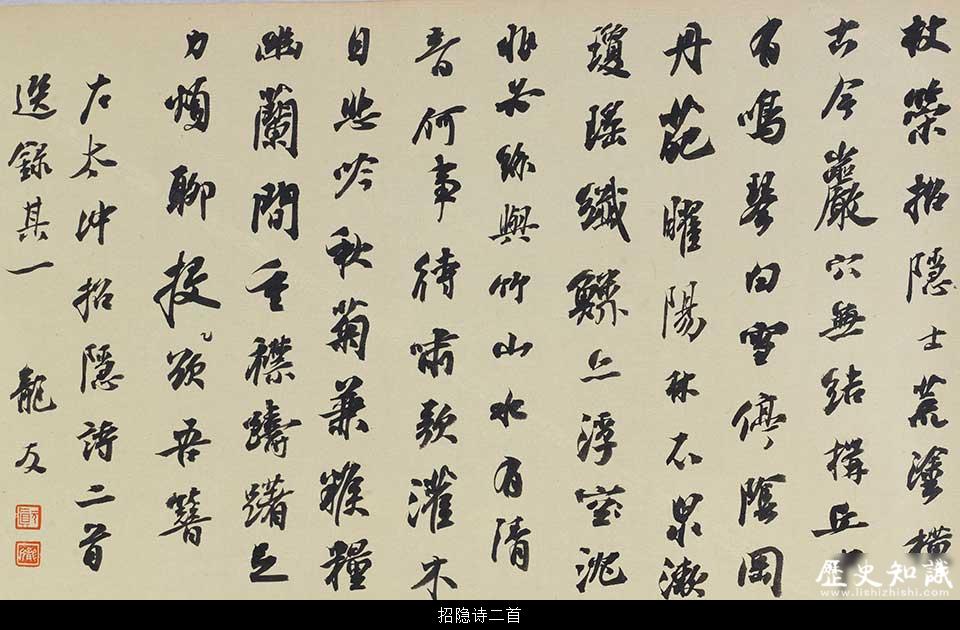 杖策招隱士荒塗橫
古今巖穴無結構丘中
有鳴琴白雪停陰岡
丹葩曜陽林石泉漱
瓊瑤纖鱗浮
非必絲與竹山水有清
音何事待嘯歌灌木
自悲吟秋菊兼糇糧
幽蘭間重襟躊躇足
力煩聊投欲吾簪
左太沖招隱詩二首
選錄其一 龍友
歷史知識
www.lishizhishi.com
招隐诗二首